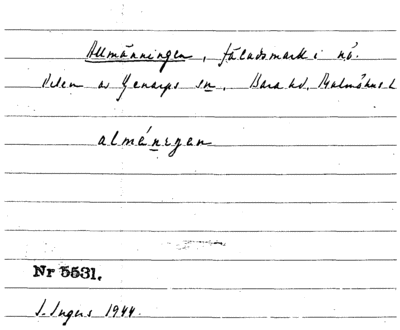 Allmänningen, fäladsmark i nö.
delen av Genarps sn, Bara hd, Malmöhus l
almäningan
Nr 5531.
S. Ingers 1944.